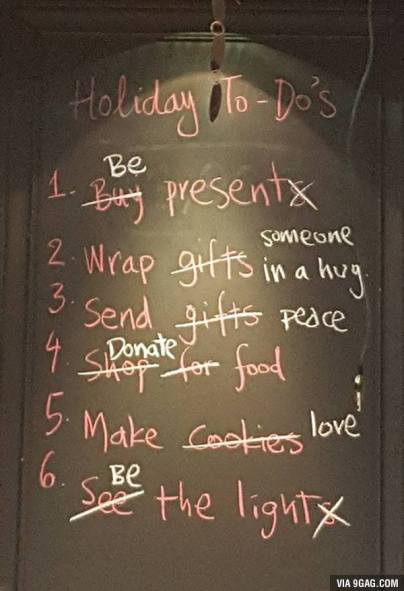 Holiday To-Do's
Be
1. Buy presents
someone
2. Wrap gifts in a hug.
3. Send gifts peace
Donate
4. Shop for food
5. Make cookies love
Be
6. See the lights
VIA 9GAG.COM